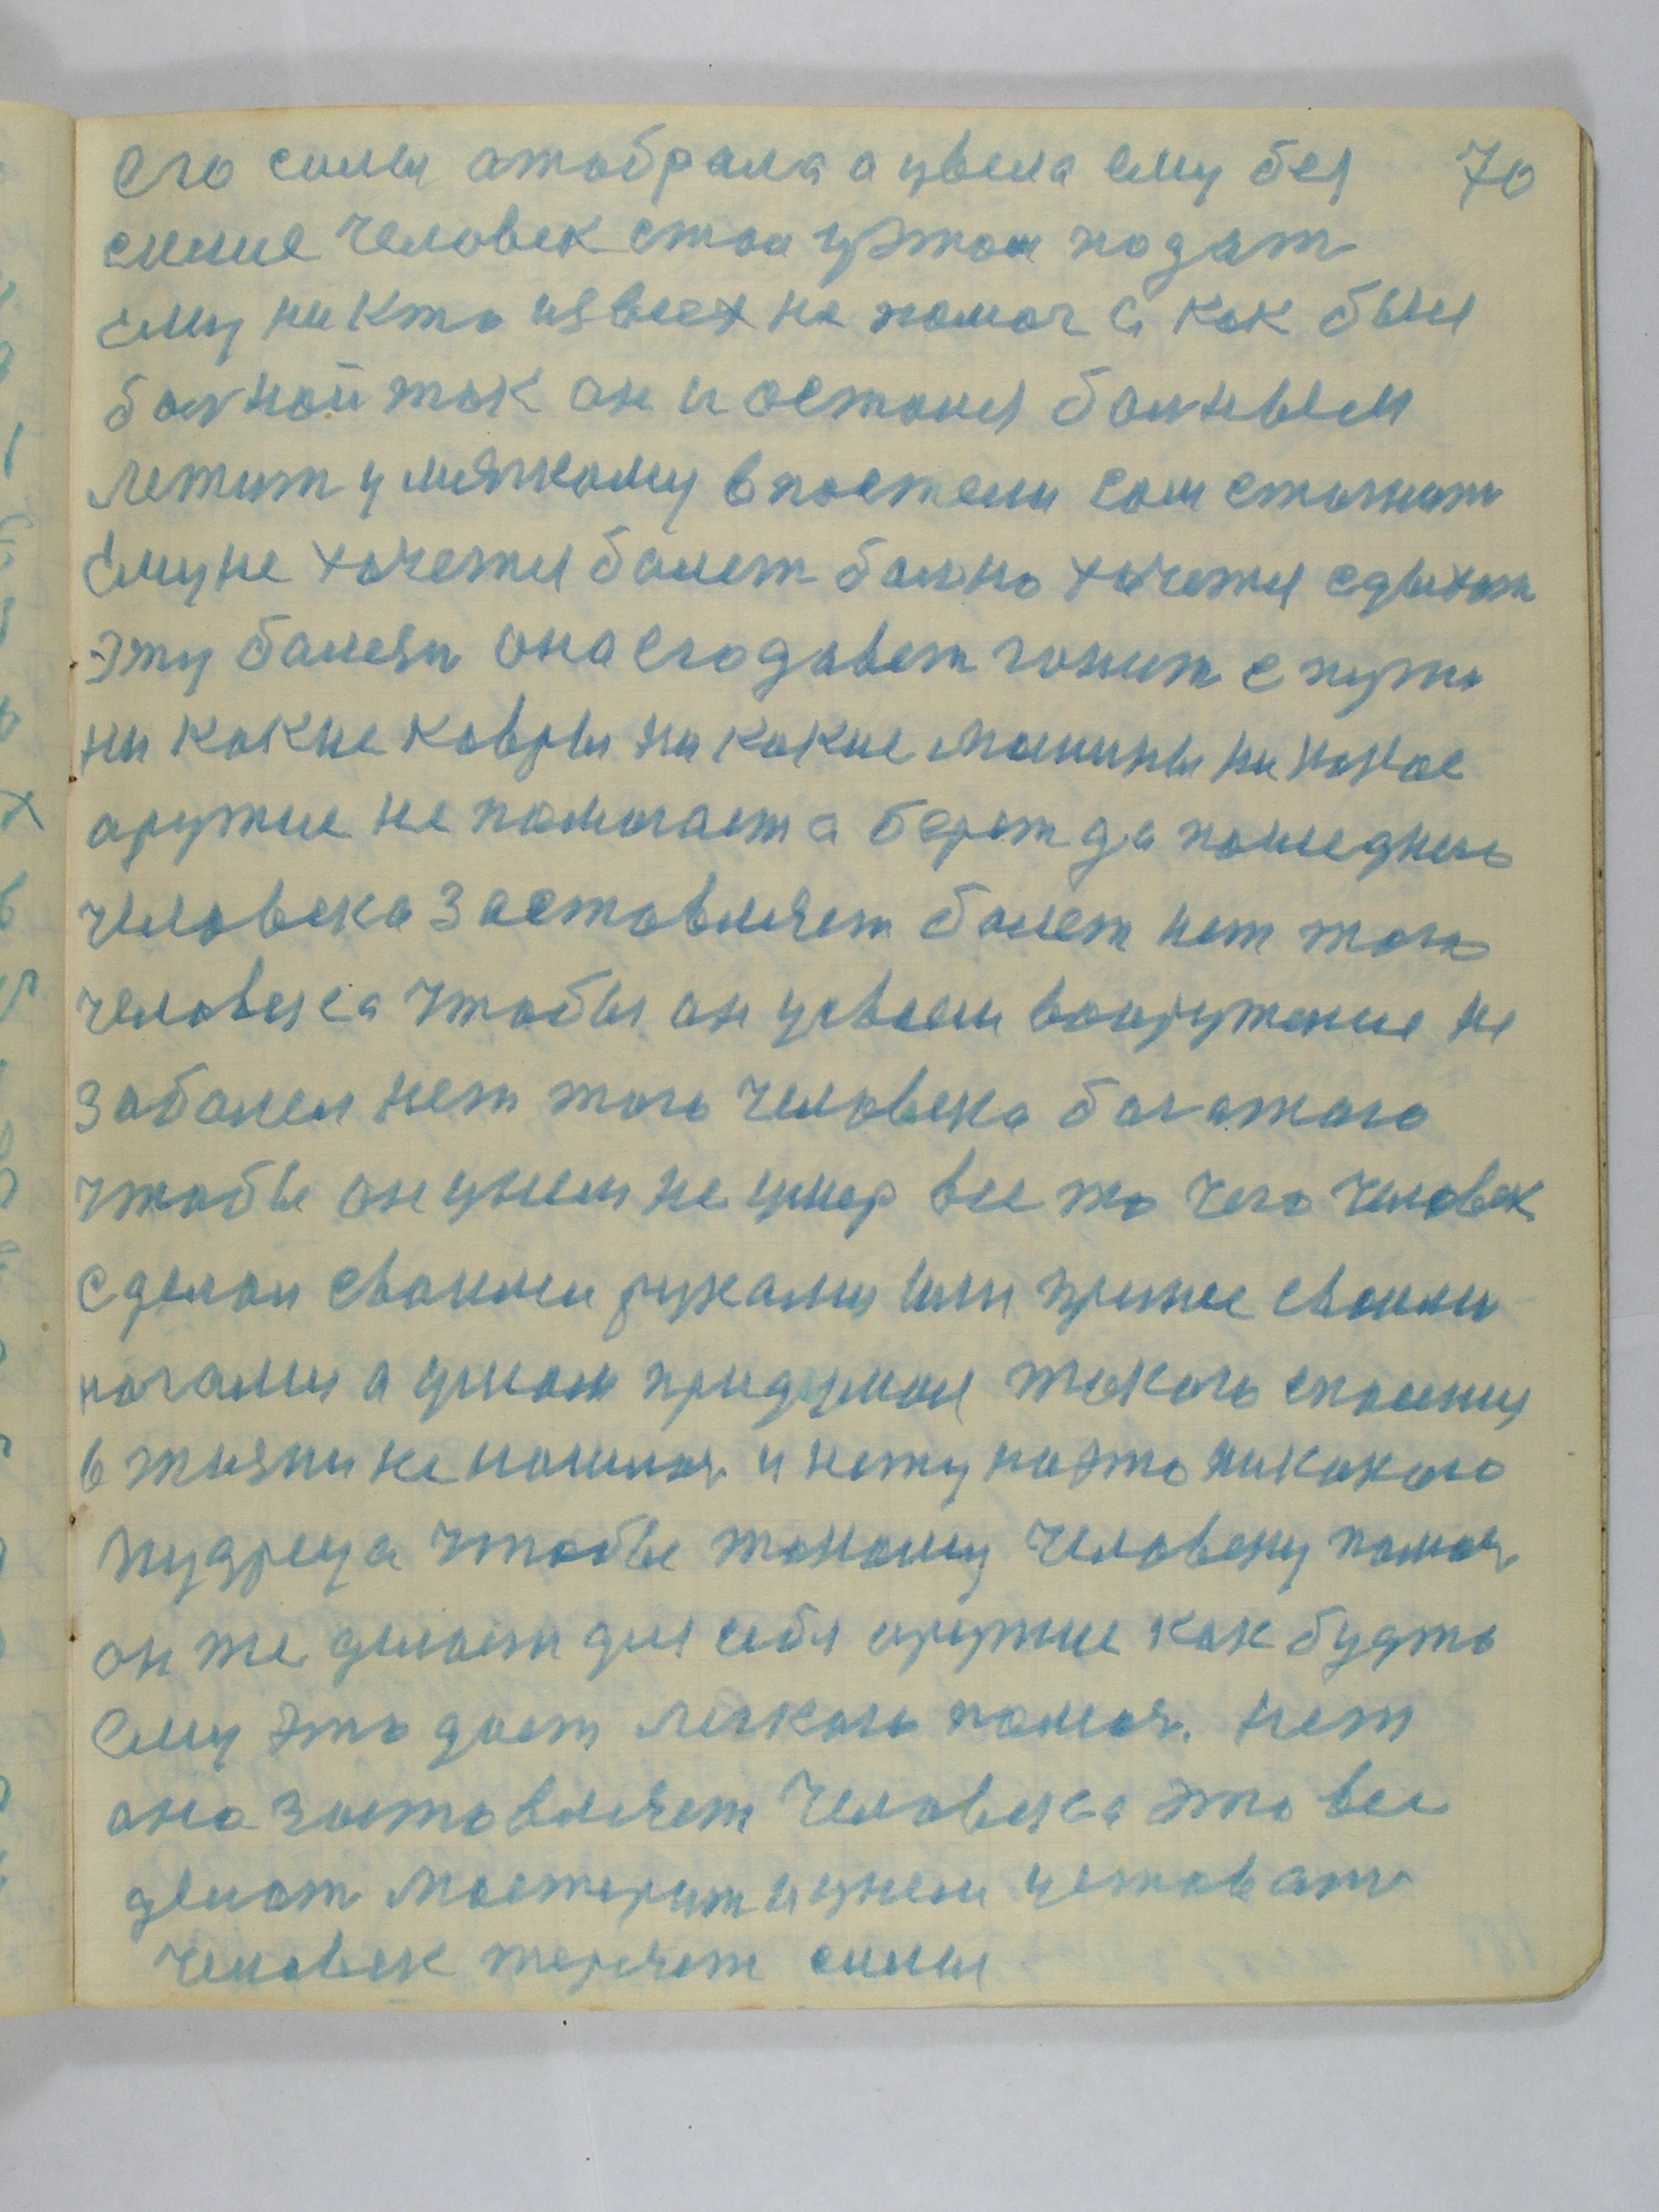 его силы атобрала а ввела ему бес 70
силие человек стал уэтом подат
ему ни кто извсех не помог а как был
болной так он и остался болным
лежит у мягкому впостели сам стогнит
ему не хочется болет болно хочется сдыхат
эту болезн она его давет гонит с пути
ни какие ковры ни какие машины ни какое
аружие не помогает а берет да последнего
человека заставляет болет нет того
человека чтобы он усвоем вооружение не
заболел нет того человека богатого
чтобы он унем не умер все то чего человек
сделал своими руками или пришел своими
ногами а умом придумал такого спасения
в жизни не нашлос и нету наэто никакого
мудреца чтобы такому человеку помоч
он же делает для себя аружие как будто
ему это дает легкаго помоч. нет
она заставляет человека это все
делат мастерит и унем устават
человек теряет силы